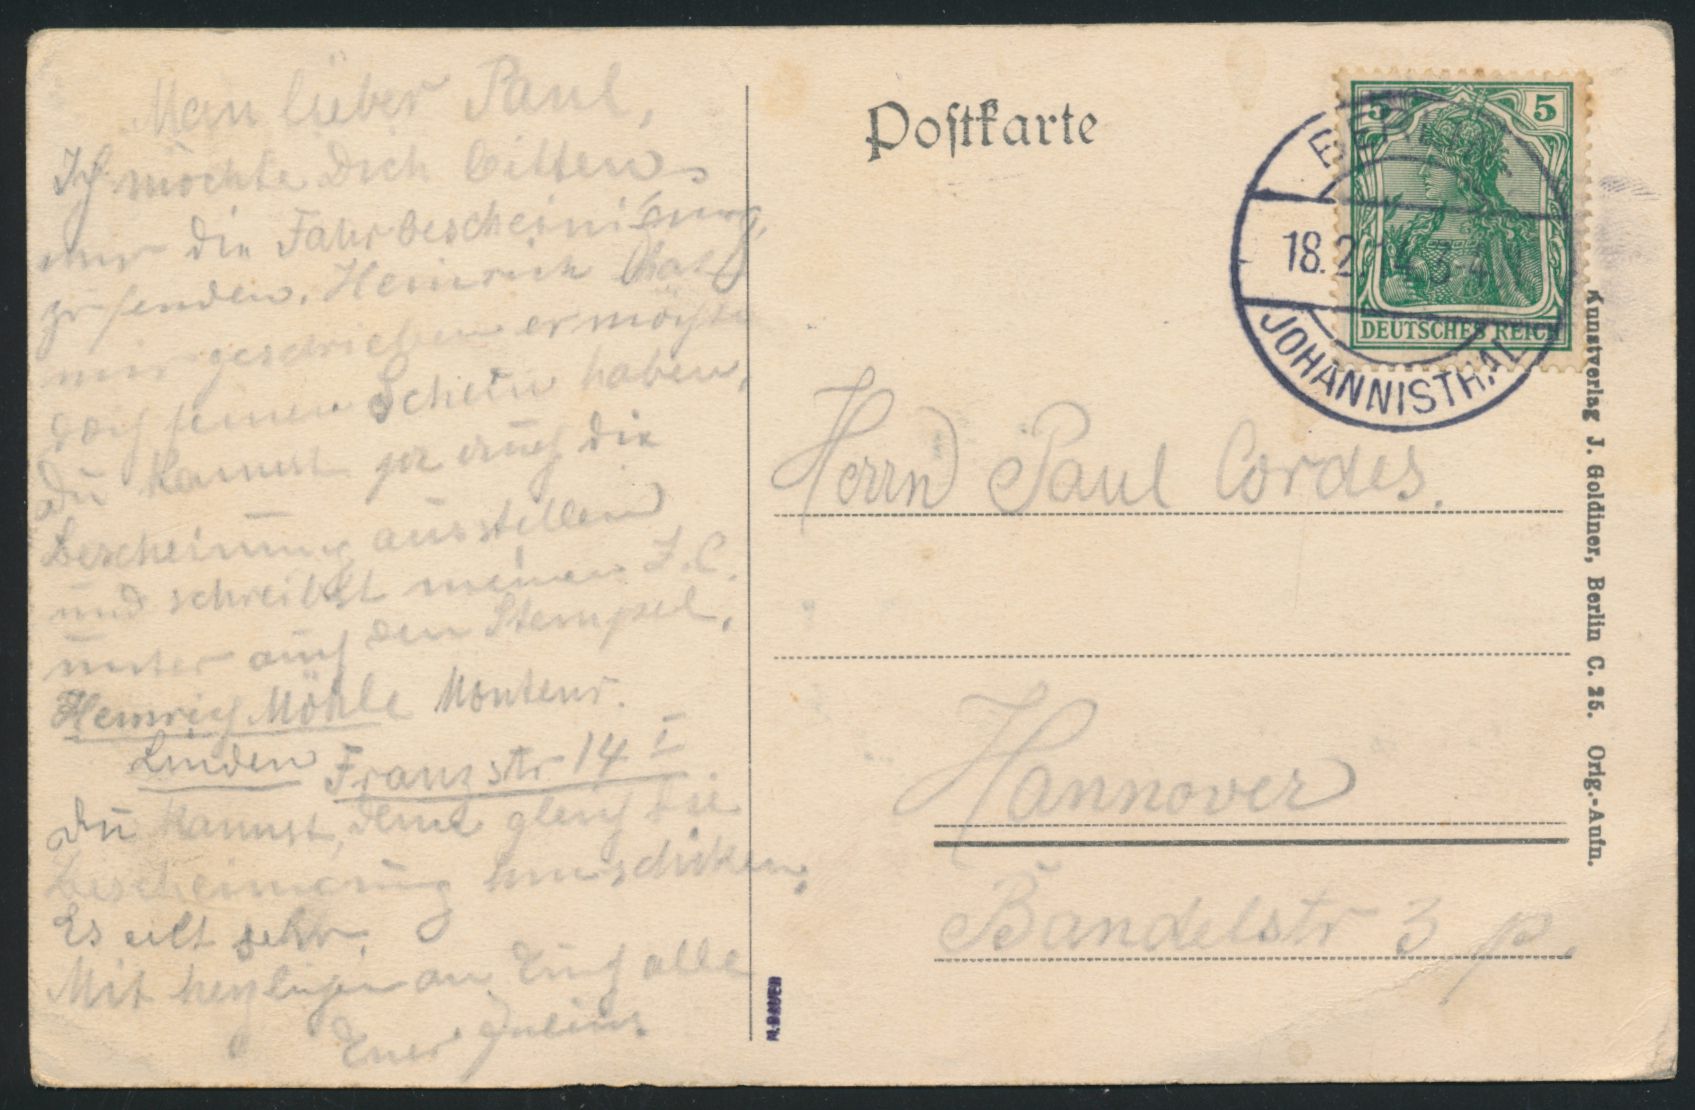 Mein lieber Paul,
Ich möchte Dich bitten
mir die Fahrbescheinigung,
zu senden. Heinrich hat
mir geschrieben er möchte
doch seinen Schein haben,
Du kannst ja auch die
Bescheinung ausstellen
und schreibst meinen J. C.
unter auf den Stempel.
Heinrich Möhle Monteur.
Linden Franzstr 14 I
Du kannst, denn gleich die
Bescheinigung hinschicken,
Es eilt sehr.
Mit herzlichen an Euch alle
Euer Julius.
Postkarte
5 5
DEUTSCHES REICH
BERLIN
18.2.14 3-4 N
JOHANNISTHAL
Herrn Paul Cordes.
Hannover
Bandelstr 3 p.
Kunstverlag J. Goldiner, Berlin C. 25. Orig.-Aufn.
M. BAUER